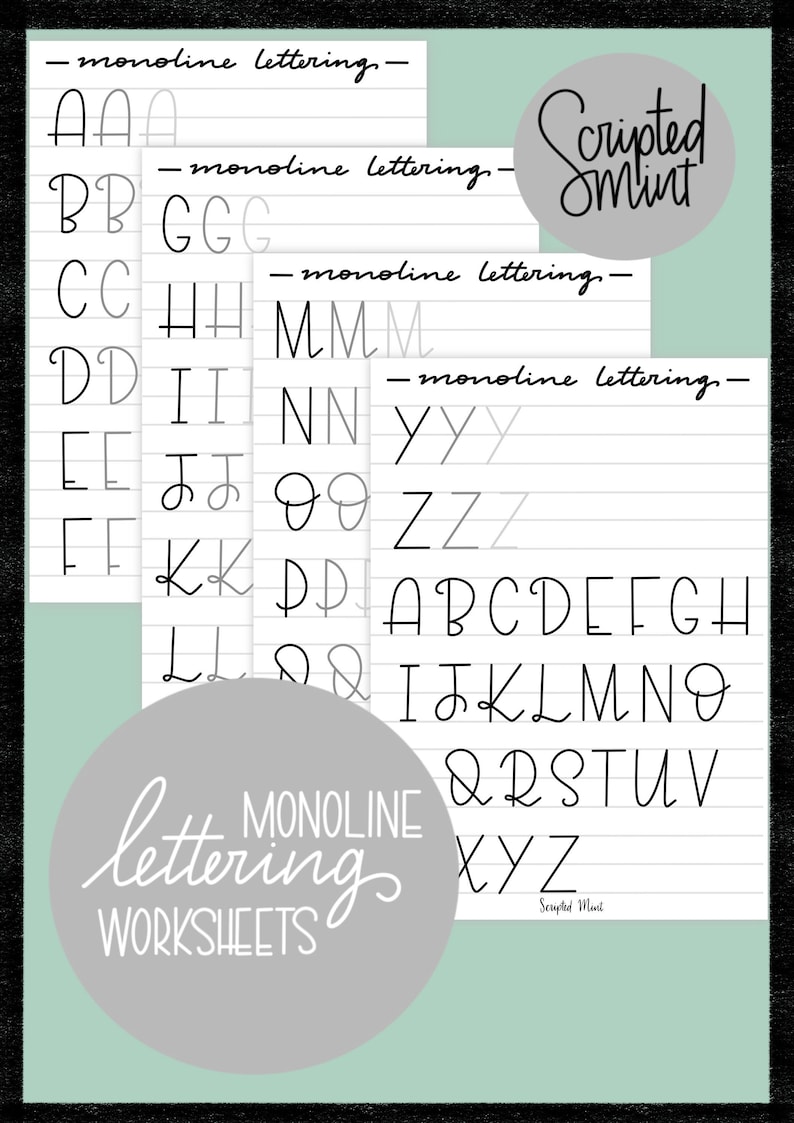 — monoline lettering —
A A A
B B
C C
D D
E E
F F
— monoline lettering —
G G G
H H
I I
J J
K K
L L
— monoline lettering —
M M M
N N
O O
P P
Q Q
— monoline lettering —
Y Y Y
Z Z Z
A B C D E F G H
I J K L M N O
Q R S T U V
X Y Z
Scripted Mint
Scripted
Mint
MONOLINE
lettering
WORKSHEETS